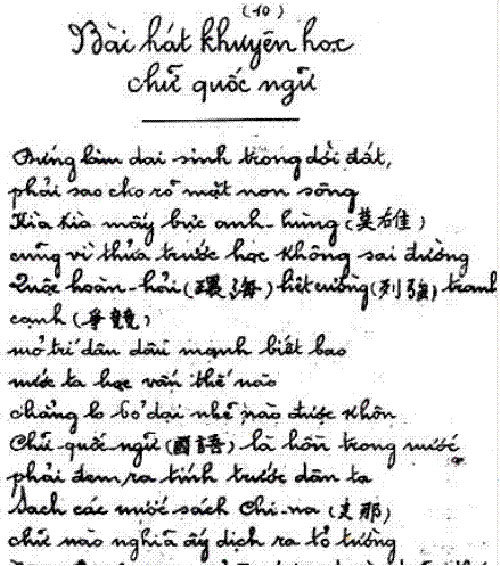 (10)
Bài hát khuyên học
chữ quốc ngữ
Đứng làm dai sinh trong dời đất,
phải sao cho rõ mặt non sông
Kìa kìa mấy bực anh-hùng (英雄)
cũng vì thủa trước học không sai đường
Quộc hoàn-hải (環海) liệt cường (列強) tranh
cạnh (爭競)
mở trí dân dầu mạnh biết bao
nước ta học vấn thế nào
chẳng lo bỏ dại nhẽ nào được khôn
Chữ quốc ngữ (國語) là hồn trong nước
phải đem ra tính trước dân ta
Sach các nước sách Chi-na (支那)
chữ nào nghĩa ấy dịch ra tỏ tường